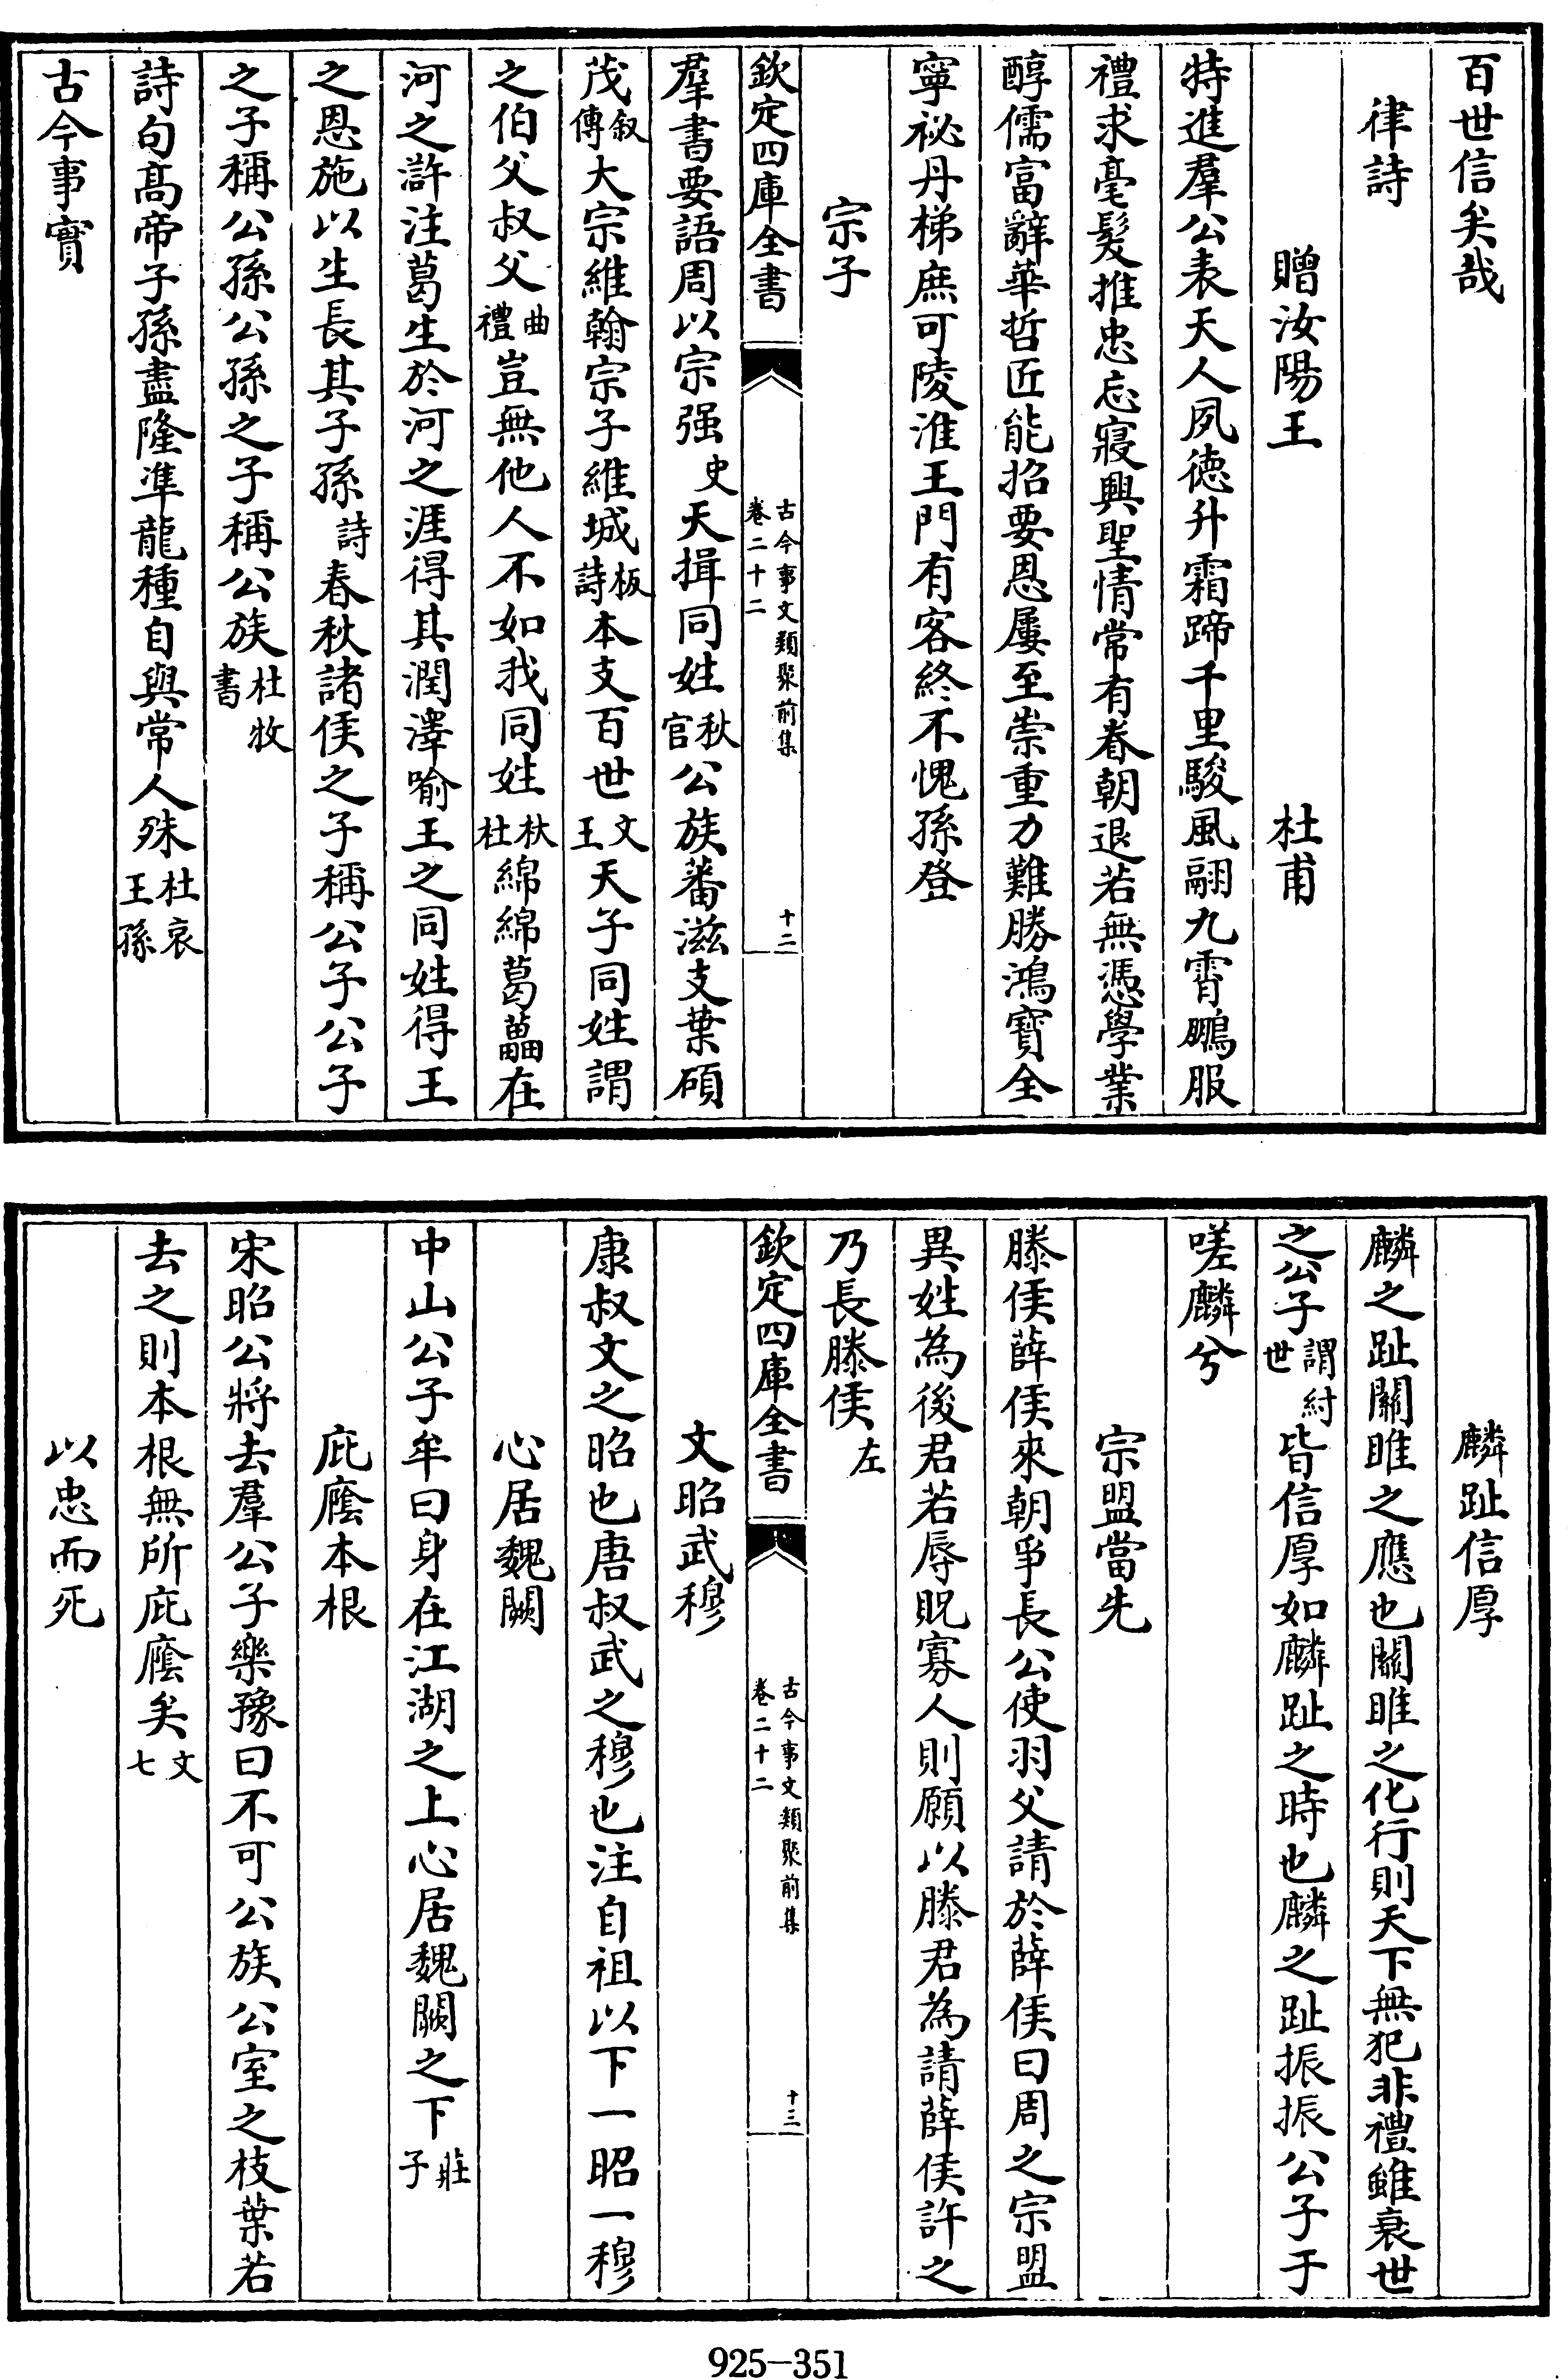 百世信矣哉
律詩
贈汝陽王 杜甫
特進羣公表天人夙德升霜蹄千里駿風翮九霄鵬服
禮求毫髮推忠忘寢興聖情常有眷朝退若無憑學業
醇儒富辭華哲匠能招要恩屢至崇重力難勝鴻寶全
寧祕丹梯庶可陵淮王門有客終不愧孫登
宗子
欽定四庫全書 古今事文類聚前集 卷二十二 十二
羣書要語周以宗强史天揖同姓秋官公族蕃滋支葉碩
茂叙傳大宗維翰宗子維城板詩本支百世文王天子同姓謂
之伯父叔父曲禮豈無他人不如我同姓杕杜綿綿葛藟在
河之滸注葛生於河之涯得其潤澤喻王之同姓得王
之恩施以生長其子孫詩春秋諸侯之子稱公子公子
之子稱公孫公孫之子稱公族杜牧書
詩句髙帝子孫盡隆準龍種自與常人殊杜哀王孫
古今事實
麟趾信厚
麟之趾關雎之應也關雎之化行則天下無犯非禮雖衰世
之公子謂紂世皆信厚如麟趾之時也麟之趾振振公子于
嗟麟兮
宗盟當先
滕侯薛侯來朝爭長公使羽父請於薛侯曰周之宗盟
異姓為後君若辱貺寡人則願以滕君為請薛侯許之
乃長滕侯左
欽定四庫全書 古今事文類聚前集 卷二十二 十三
文昭武穆
康叔文之昭也唐叔武之穆也注自祖以下一昭一穆
心居魏闕
中山公子牟曰身在江湖之上心居魏闕之下莊子
庇廕本根
宋昭公將去羣公子樂豫曰不可公族公室之枝葉若
去之則本根無所庇廕矣文七
以忠而死
925-351